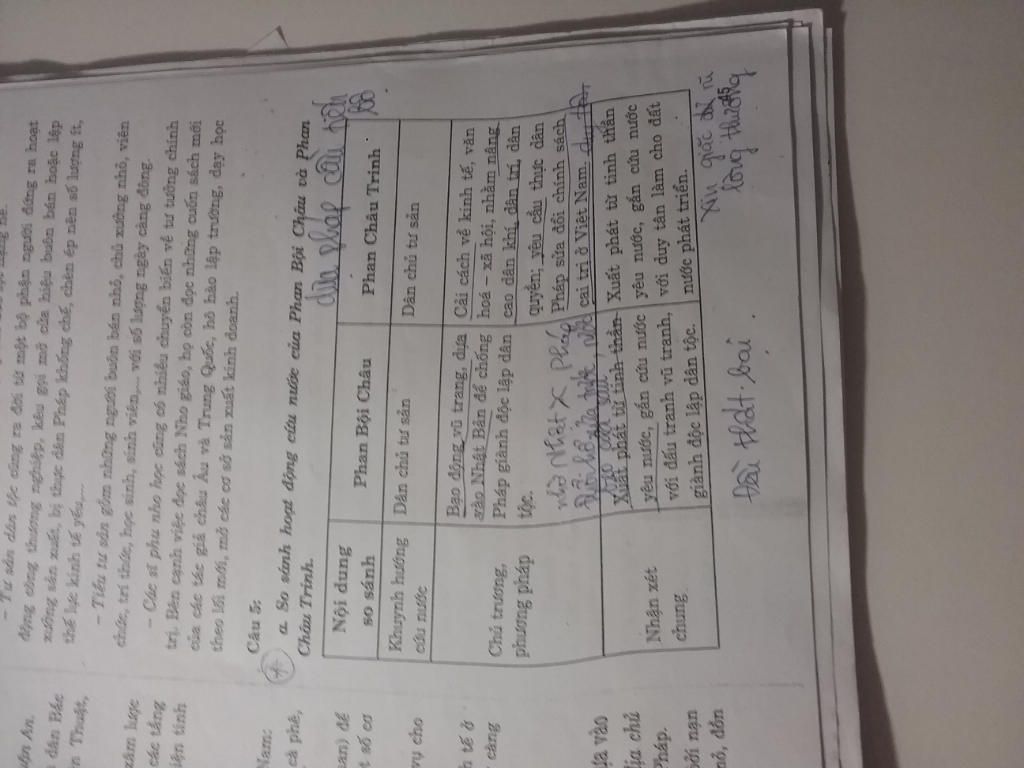 - Tư sản dân tộc cũng ra đời từ một bộ phận người đứng ra hoạt
động công thương nghiệp, kêu gọi mở cửa hiệu buôn bán hoặc lập
xưởng sản xuất, bị thực dân Pháp khống chế, chèn ép nên số lượng ít,
thế lực kinh tế yếu,...
- Tiểu tư sản gồm những người buôn bán nhỏ, chủ xưởng nhỏ, viên
chức, trí thức, học sinh, sinh viên,... với số lượng ngày càng đông.
- Các sĩ phu nho học cũng có nhiều chuyển biến về tư tưởng chính
trị. Bên cạnh việc đọc sách Nho giáo, họ còn đọc những cuốn sách mới
của các tác giả châu Âu và Trung Quốc, hô hào lập trường, dạy học
theo lối mới, mở các cơ sở sản xuất kinh doanh.
Câu 5:
a. So sánh hoạt động cứu nước của Phan Bội Châu và Phan
Châu Trinh.
dựa Pháp cầu tiến
bộ
Nội dung
so sánh
Phan Bội Châu
Phan Châu Trinh
Khuynh hướng
cứu nước
Dân chủ tư sản
Dân chủ tư sản
Chủ trương,
phương pháp
Bạo động vũ trang, dựa
vào Nhật Bản để chống
Pháp giành độc lập dân
tộc.
nhờ Nhật X Pháp
Đuổi hổ cửa trước rước
beo cửa sau
Cải cách về kinh tế, văn
hoá – xã hội, nhằm nâng
cao dân khí, dân trí, dân
quyền; yêu cầu thực dân
Pháp sửa đổi chính sách
cai trị ở Việt Nam.
Nhận xét
chung
Xuất phát từ tinh thần
yêu nước, gắn cứu nước
với đấu tranh vũ tranh,
giành độc lập dân tộc.
Xuất phát từ tinh thần
yêu nước, gắn cứu nước
với duy tân làm cho đất
nước phát triển.
Đều thất bại
Xin giặc rủ
lòng thương
45
Nam:
cà phê,
số cơ
vụ cho
tế ở
càng
dựa vào
địa chủ
Pháp.
bởi nạn
nô, đồn
dân Bắc
Thuật,
xâm lược
các tầng